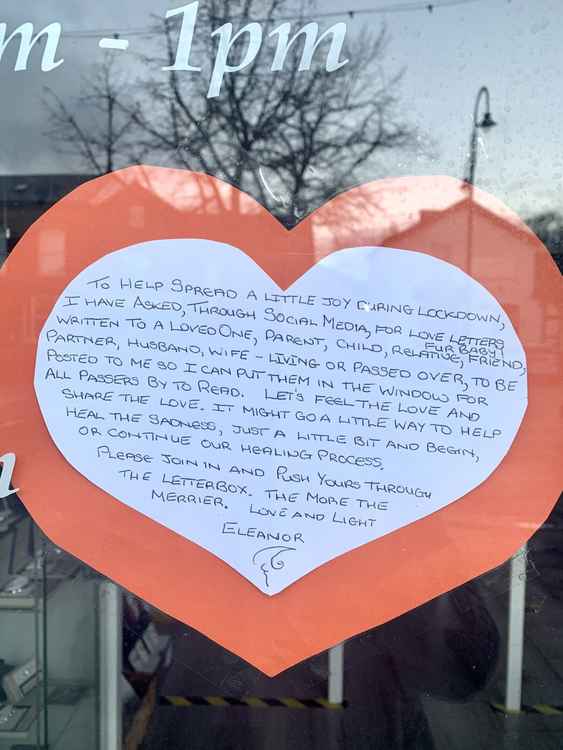 m - 1pm
TO HELP SPREAD A LITTLE JOY DURING LOCKDOWN,
I HAVE ASKED, THROUGH SOCIAL MEDIA, FOR LOVE LETTERS
WRITTEN TO A LOVED ONE, PARENT, CHILD, RELATIVE, FUR BABY! FRIEND,
PARTNER, HUSBAND, WIFE - LIVING OR PASSED OVER, TO BE
POSTED TO ME SO I CAN PUT THEM IN THE WINDOW FOR
ALL PASSERS BY TO READ. LET'S FEEL THE LOVE AND
SHARE THE LOVE. IT MIGHT GO A LITTLE WAY TO HELP
HEAL THE SADNESS, JUST A LITTLE BIT AND BEGIN,
OR CONTINUE OUR HEALING PROCESS.
PLEASE JOIN IN AND PUSH YOURS THROUGH
THE LETTERBOX. THE MORE THE
MERRIER. LOVE AND LIGHT
ELEANOR